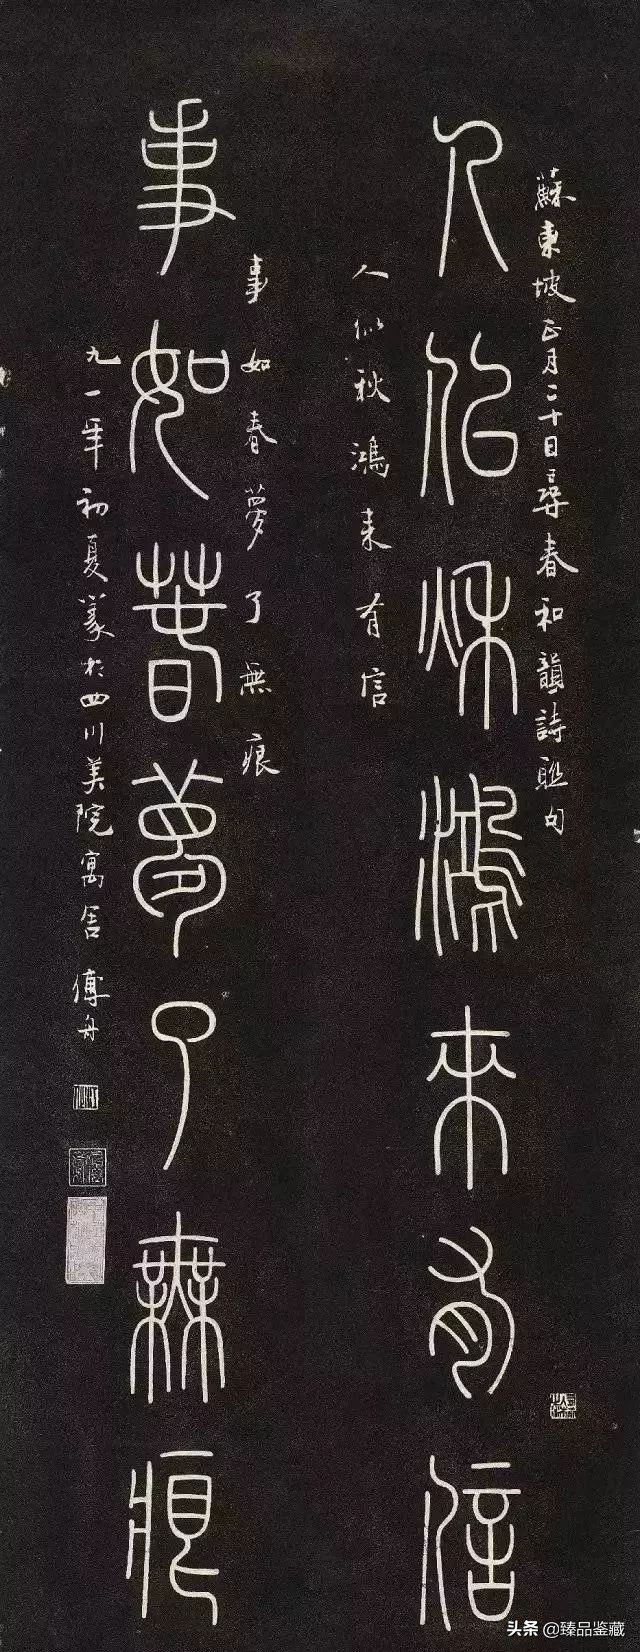 蘇東坡正月二十日尋春和韻詩聯句
人似秋鴻來有信
人似秋鴻来有信
事如春夢了無痕
事如春夢了無痕
九一年初夏篆於四川美院寓舍 傅舟
头条 @臻品鉴藏